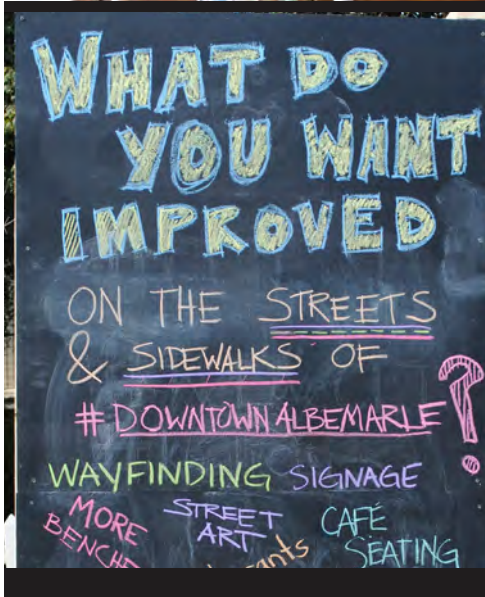 WHAT DO
YOU WANT
IMPROVED
ON THE STREETS
& SIDEWALKS OF
#DOWNTOWNALBEMARLE?
WAYFINDING SIGNAGE
MORE
STREET
ART
CAFÉ
SEATING